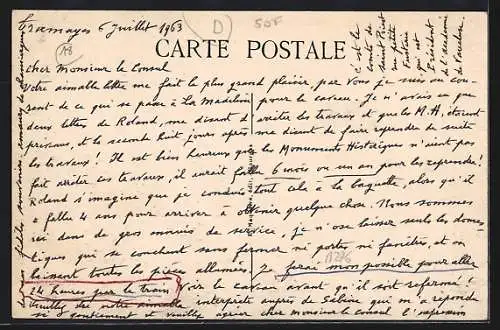 Tramayes 6 Juillet 1963
D
50F
78
CARTE POSTALE
C'est le
comte de
petite
qui est
Président
de l'académie
de Vaucluse
Cher Monsieur le Consul
Votre aimable lettre me fait le plus grand plaisir, par vous je suis au cou-
rant de ce qui se passe à La Madeleine pour le caveau. Je n'avais eu que
deux lettres de Roland, me disant d'arrêter les travaux et que les M.H. étaient
prévenus, et la seconde huit jours après me disant de faire reprendre de suite
les travaux ! Il est bien heureux que les Monuments Historiques n'aient pas
fait arrêter ces travaux, il aurait fallu 6 mois ou un an pour les reprendre !
Roland s'imagine que je conduis tout cela à la baguette, alors qu'il
a fallu 4 ans pour arriver à obtenir quelque chose. Nous sommes
ici dans de gros ennuis de service, je n'ose laisser seuls les domes-
tiques qui se couchent sans fermer ni portes ni fenêtres, et en
laissant toutes les pièces allumées. Je ferai mon possible pour aller
24 heures par le train voir le caveau avant qu'il soit refermé !
Veuillez être notre aimable interprète auprès de Sabine qui m'a répondu
si gentiment et veuillez agréer cher Monsieur le Consul l'expression